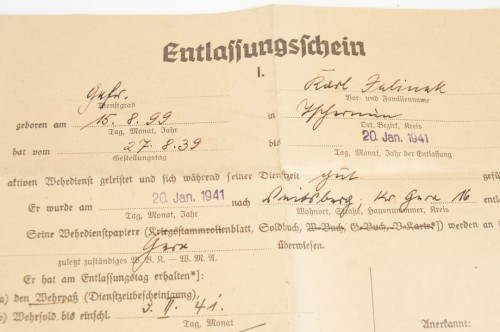 Entlassungsschein
I.
Gefr. Karl Jelinek
Dienstgrad Vor- und Familienname
geboren am 15. 8. 99 in
Tag, Monat, Jahr Ort, Bezirk, Kreis
hat vom 27. 8. 39 bis 20. Jan. 1941
Gestellungstag Tag, Monat, Jahr der Entlassung
aktiven Wehrdienst geleistet und sich während seiner Dienstzeit gut gefü
Er wurde am 20. Jan. 1941 nach Kr Gera 16 entl
Tag, Monat, Jahr Wohnort, Straße, Hausnummer, Kreis
Seine Wehrdienstpapiere (Kriegsstammrollenblatt, Soldbuch, W-Buch, G-Buch, V-Karte*]) werden an
Gera überwiesen.
zuletzt zuständiges W. B. K. – W. M. A.
Er hat am Entlassungstag erhalten*]:
a) den Wehrpaß (Dienstzeitbescheinigung),
b) Wehrsold bis einschl. 3. II. 41.
Tag, Monat
Anerkannt: